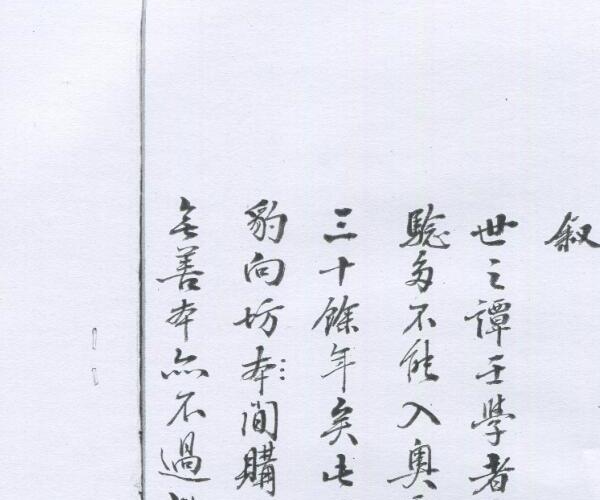 叙
世之譚壬學者
騐多不能入奥
三十餘年矣此
豹向坊本間購
無善本亦不過